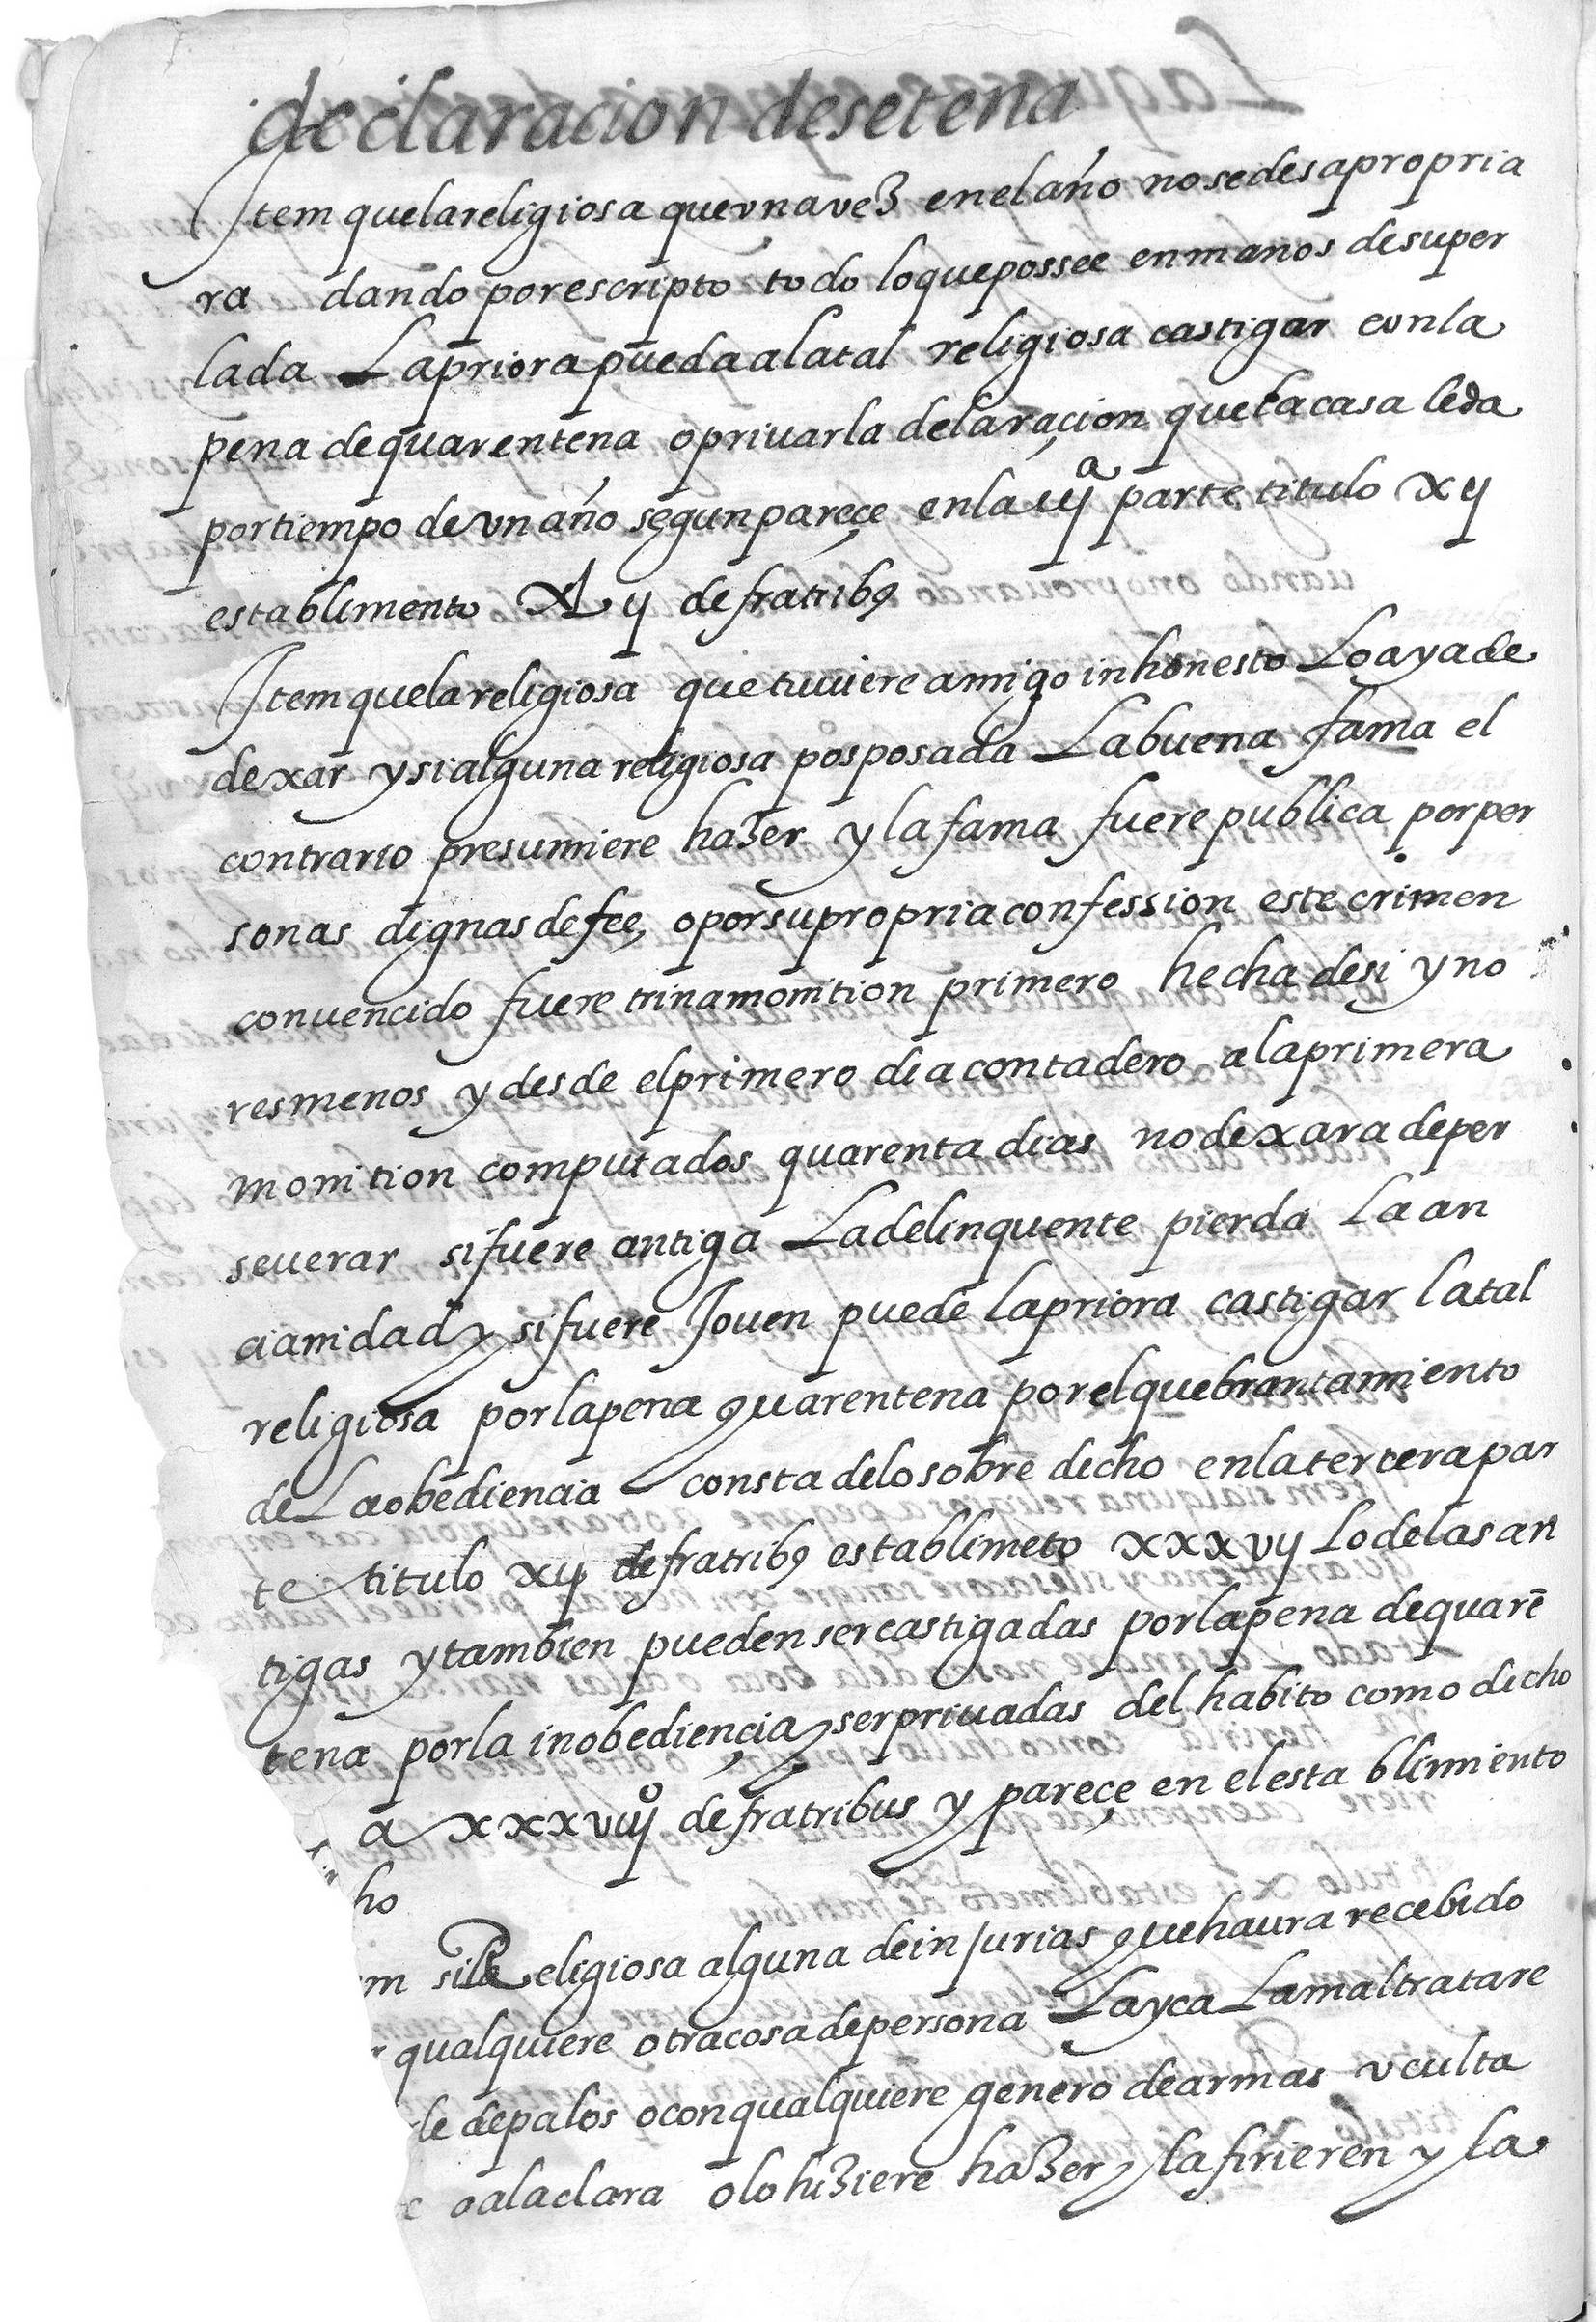 declaracion de setena
Item que la religiosa que vna vez en el año no se desapropria
ra dando por escripto todo lo que possee en manos de su per
lada La priora pueda a la tal religiosa castigar con la
pena de quarentena o priuarla de la raçion que la casa le da
por tiempo de vn año segun pareçe en la iij a parte titulo xij
establimento XLij de fratribꝯ
Item que la religiosa que tuuiere amigo inhonesto Lo aya de
dexar y si alguna religiosa posposada La buena fama el
contrario presumiere hazer y la fama fuere publica por per
sonas dignas de fee, o por su propria confession este crimen
conuencido fuere trina monition primero hecha desi y no
res menos y desde el primero dia contadero a la primera
monition computados quarenta dias no dexara de per
seuerar si fuere antiga La delinquente pierda La an
cianidad y si fuere Jouen puede la priora castigar la tal
religiosa por la pena quarentena por el quebrantamiento
de La obediencia consta de lo sobre dicho en la tercera par
te titulo xij de fratribꝯ establimeto xxxvij Lo de las an
tigas y tambien pueden ser castigadas por la pena de quarē
tena por la inobediençia y ser priuadas del habito como dicho
a xxxviijº de fratribus y pareçe en el establimiento
ho
m si la Religiosa alguna de injurias que haura recebido
r qualquiere otra cosa de persona Layca La maltratare
le de palos o con qualquiere genero de armas vculta
e o a la clara o lo hiziere hazer y la firieren y la